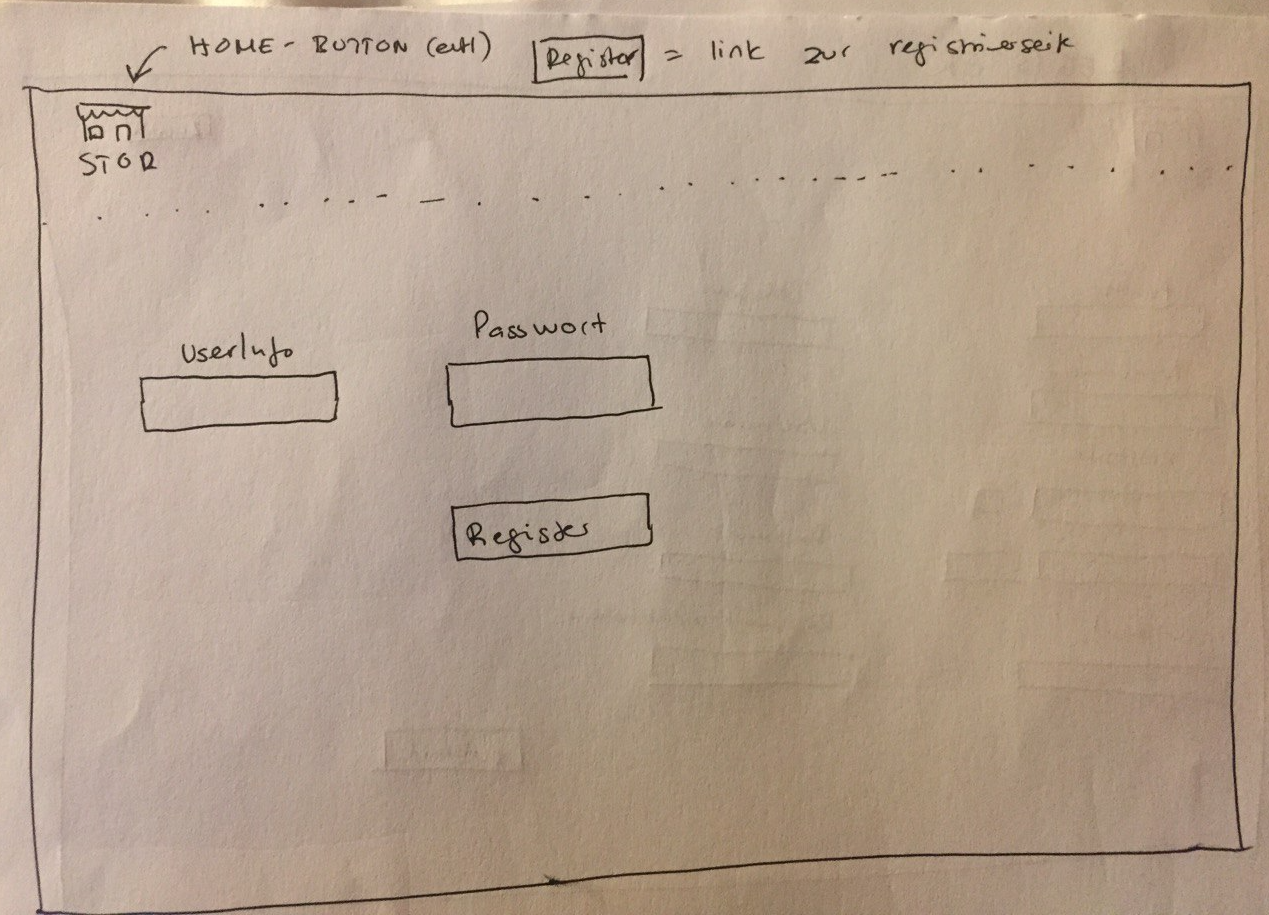 HOME - BUTTON (evtl)
Register = link zur registrierseite
STOR
UserInfo
Passwort
Register